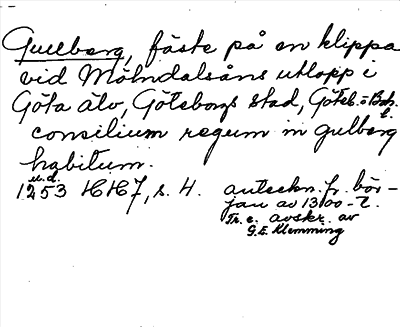 Gullberg, fäste på en klippa
vid Mölndalsåns utlopp i
Göta älv, Göteborgs stad, Göteb. o Boh. l.
consilium regum in gulberg
habitum.
u.d.
1253 HH7, s. 4. anteckn. fr. bör-
jan av 1300-t.
Tr. e. avskr. av
G.E. Klemming